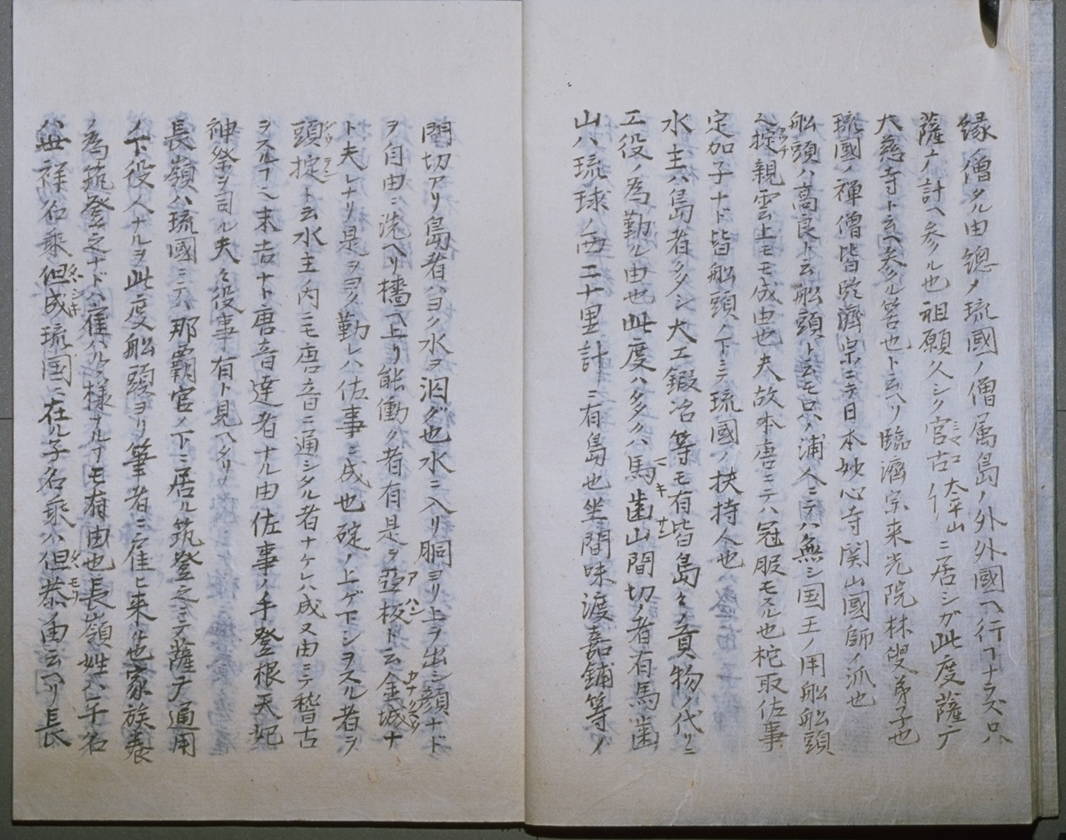 縁僧タル由總〆琉國ノ僧属島ノ外外國ヘ行ヿナラズ只ハ
薩ヱノ計ヘ参ル也祖願久シク宮古太平山ニ居シガ此度薩ヱ
大慈寺ト云ヘ参ル筈也ト云ヘリ臨濟宗来光院林叟弟子也
琉國ノ禅僧皆臨濟宗ニテ日本妙心寺関山國師ノ派也
船頭ハ高良ト云船頭ト云モ只ノ浦人ニテハ無シ国王ノ用船船頭
ハ掟親雲上モモ成由也夫故本唐ニテハ冠服モスル也柁取佐事
定加子ナド皆船頭ノ下ニテ琉國ノ扶持人也
水主ハ島者多シ大工鍛冶等モ有皆島々ノ貢物ノ代リニ
工役ノ為勤ル由也此度ハ多クハ馬歯山間切ノ者有馬歯
山ハ琉球ノ西二十里計ニ有島也坐間味渡嘉鋪等ノ
間切アリ島者ハヨク水ヲ泅グ也水ニ入リ胴ヨリ上ヲ出シ顔ナド
ヲ自由ニ洗ヘリ檣ヘ上リ能働ク者有是ヲ亞板ト云金城ナ
ト夫レナリ是ヲヨク勤レハ佐事ニ成也碇ノ上ゲ下シヲスル者ヲ
頭掟ト云水主ノ内ニモ唐音ニ通シタル者ナケレハ成ヌ由ニテ稽古
ヲスルナリ末吉ナト唐音達者ナル由佐事ノ手登根天妃
神祭ヲ司ル夫々役事有ト見ヘタリ
長嶺ハ琉國ニテハ那覇官ノ下ニ居ル筑登之ニテ薩ヱ通用
ノ下役人ナルヲ此度船頭ヨリ筆者ニ雇ヒ来ル也家族衰
ノ為筑登之ナドハ雇ハルヽ様ナルヿモ有由也長嶺姓ハ千名
毎祥名乗但成琉国ニ在ル子名乗ハ但恭由云ヘリ長